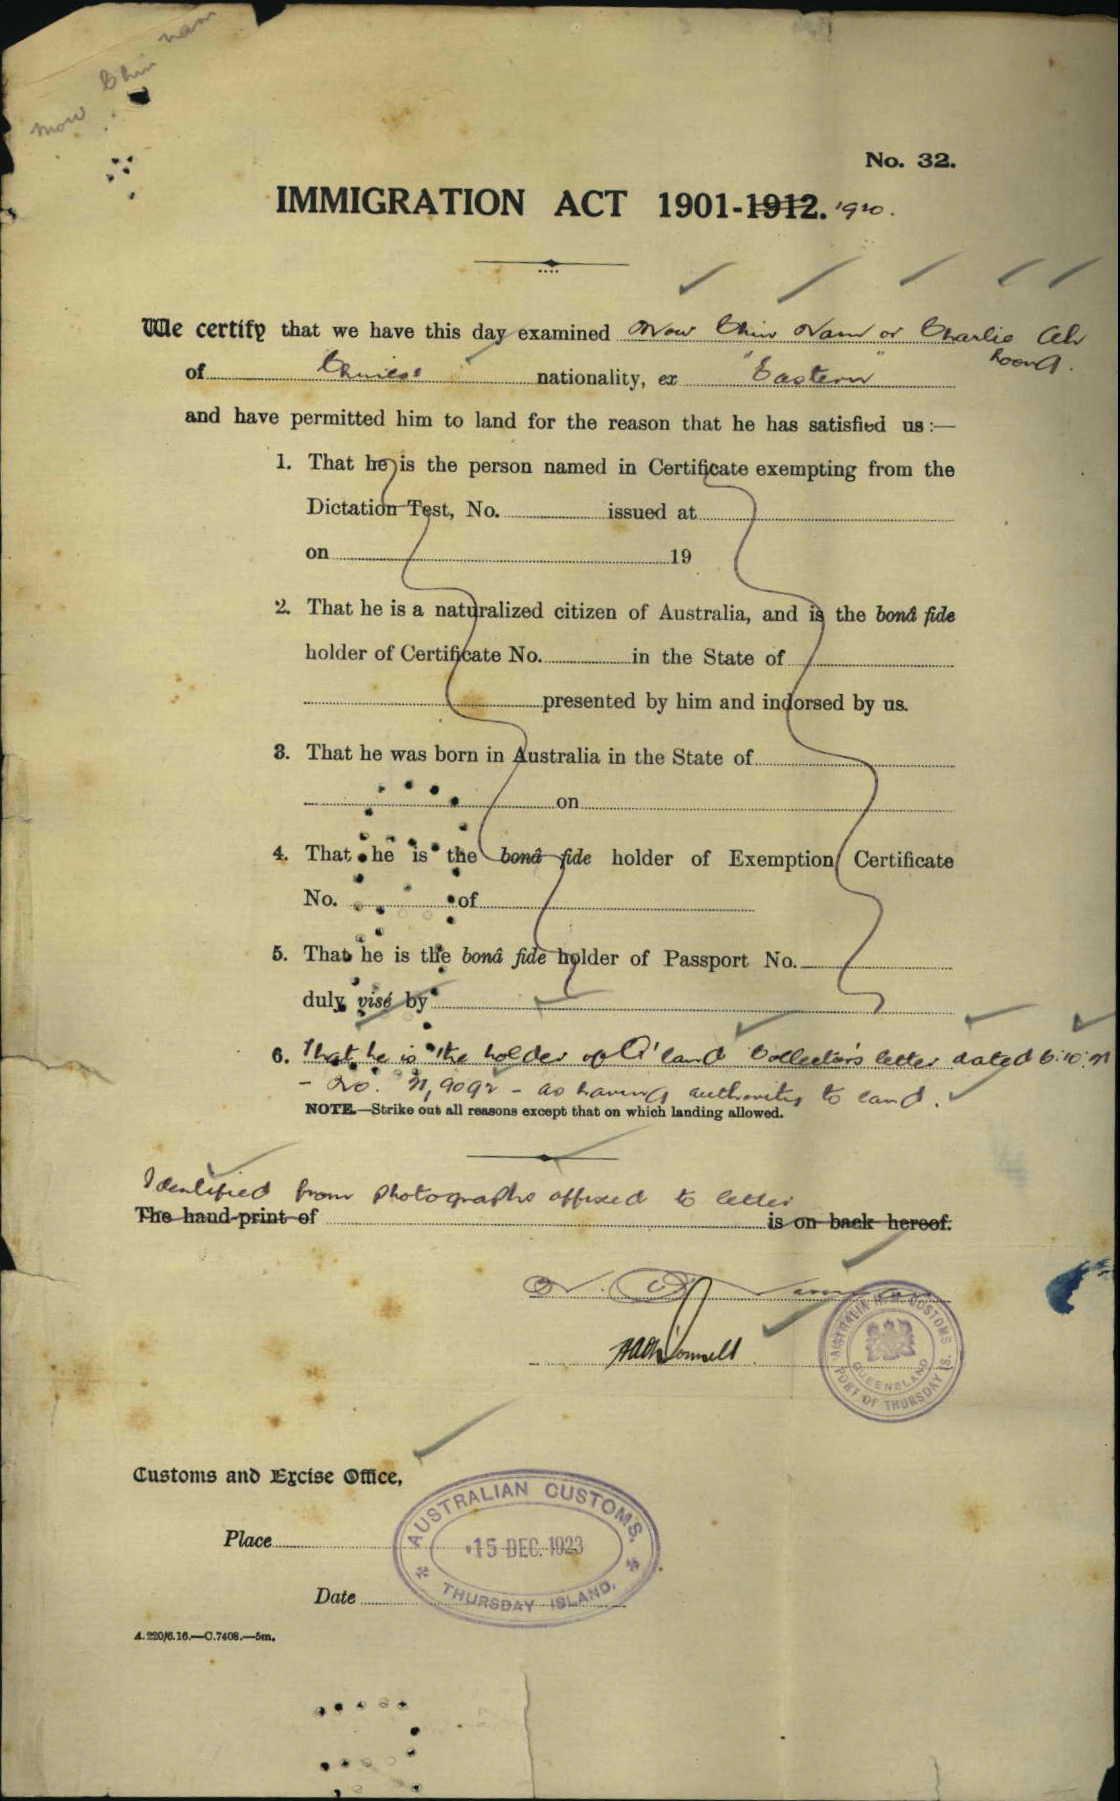 mow Chin nam
No. 32.
IMMIGRATION ACT 1901-1912. 1920.
We certify that we have this day examined Mow Chin Nam or Charlie Ah
Foong.
of Chinese nationality, ex "Eastern"
and have permitted him to land for the reason that he has satisfied us :—
1. That he is the person named in Certificate exempting from the
Dictation Test, No. issued at
on 19
2. That he is a naturalized citizen of Australia, and is the bonâ fide
holder of Certificate No. in the State of
presented by him and indorsed by us.
3. That he was born in Australia in the State of
on
4. That he is the bonâ fide holder of Exemption Certificate
No. of
5. That he is the bonâ fide holder of Passport No.
duly visé by
6. That he is the holder of Q'land Collector's letter dated 6.10.21
- No. 21,9092 - as having authority to land.
NOTE.—Strike out all reasons except that on which landing allowed.
Identified from photographs affixed to letter
The hand-print of is on back hereof.
AUSTRALIA H.M. CUSTOMS
QUEENSLAND
PORT OF THURSDAY IS.
Customs and Excise Office,
AUSTRALIAN CUSTOMS.
Place
15 DEC. 1923
Date
THURSDAY ISLAND.
A.220/6.16.—C.7408.—5m.